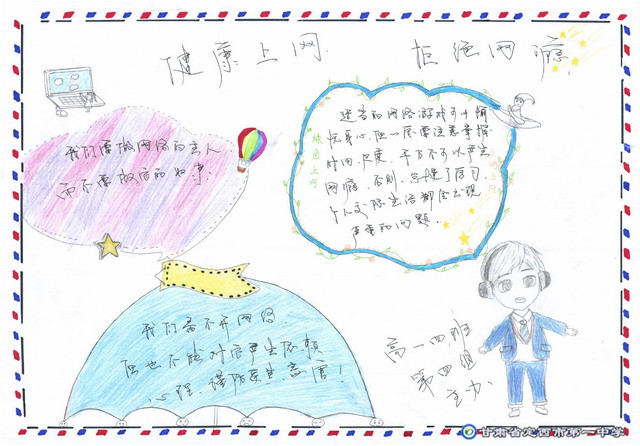 健康上网
拒绝网瘾
我们要做网络的主人
而不要做后的奴隶
绿色上网
适当的网络游戏可十倾
悦身心,但一定要注意掌握
时间、尺度,千万不可以产生
网瘾,否则,
个人交际生活都会出现
严重的问题.
我们离不开网络,
但也不能对后产生依赖
心理,谨防
高一四班
第四组
主办
甘肃省定西市第一中学